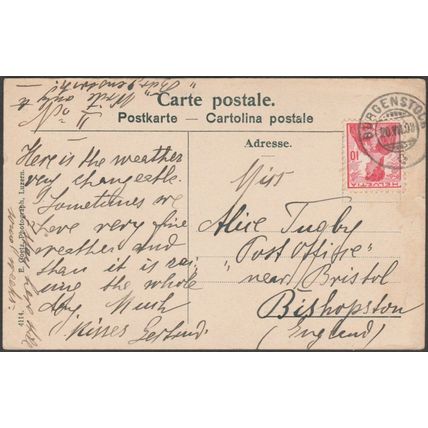 Carte postale.
Postkarte — Cartolina postale
Adresse.
BÜRGENSTOCK
HELVETIA
10
Here is the weather
very changeable.
Sometimes we
have very fine
weather and
than it is rai,
ning the whole
day. Much
Kisses Gertrud.
Miss
Alice Tugby
"Post Office"
near Bristol
Bishopston
(England)
Write only
Bürgenstock.
4114. E. Goetz, Photograph, Luzern.